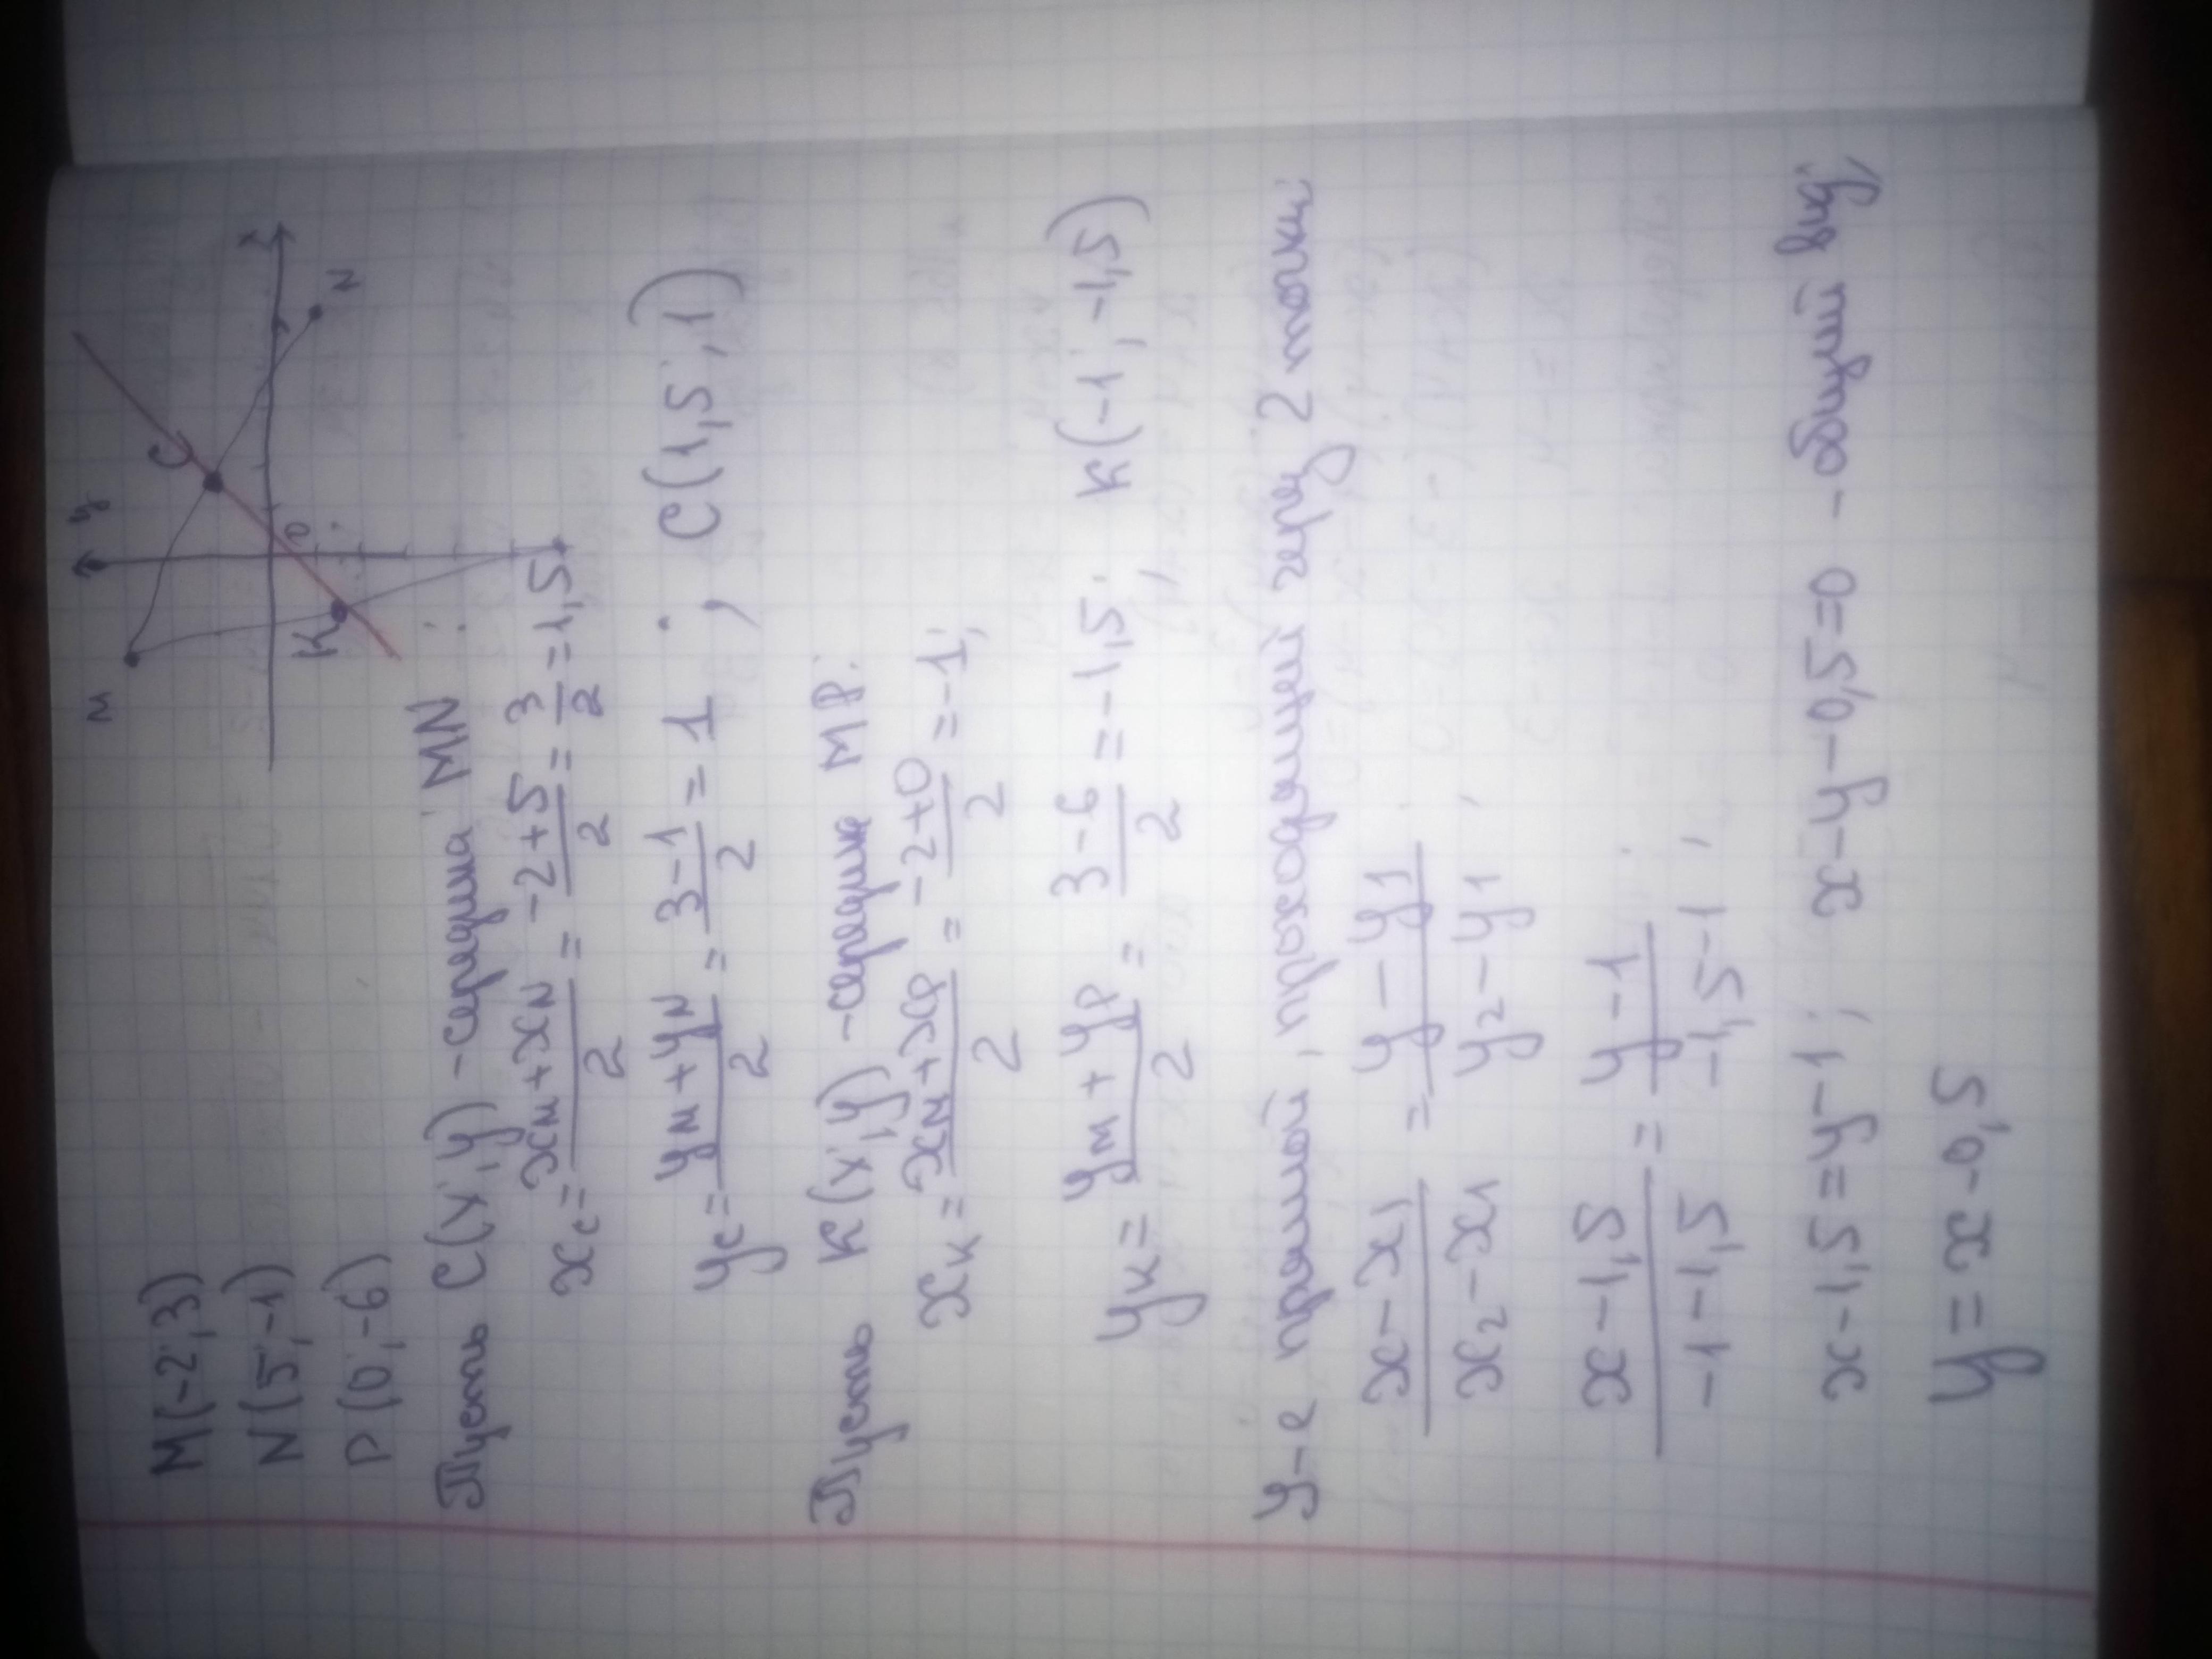 M(-2;3)
N(5;-1)
P(0;-6)
y
x
M
C
N
K
0
Пусть C(x;y) - середина MN:
xc = (xM + xN)/2 = (-2+5)/2 = 3/2 = 1,5;
yc = (yM + yN)/2 = (3-1)/2 = 1; C(1,5; 1)
Пусть K(x;y) - середина MP:
xK = (xM + xP)/2 = (-2+0)/2 = -1;
yK = (yM + yP)/2 = (3-6)/2 = -1,5; K(-1; -1,5)
У-е прямой, проходящей через 2 точки:
(x-x1)/(x2-x1) = (y-y1)/(y2-y1);
(x-1,5)/(-1-1,5) = (y-1)/(-1,5-1);
x-1,5=y-1; x-y-0,5=0 - общий вид
y=x-0,5